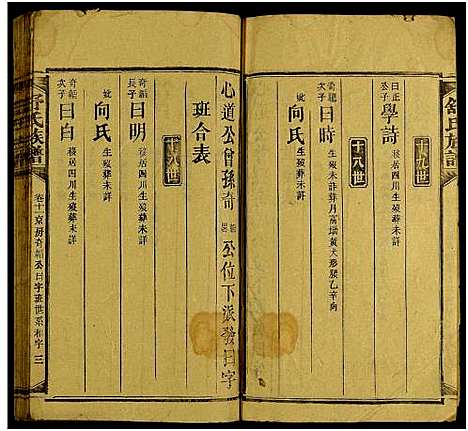 舒氏族譜
十九世
曰正公子
學詩
移居四川生歿葬未詳
十八世
次子
曰時
生歿未詳葬月高壋黃犬形腰乙辛向
妣
向氏
生歿葬未詳
心道公曾孫奇
公位下派發曰字
班合表
十八世
奇韜長子
曰明
移居四川生歿葬未詳
妣
向氏
生歿葬未詳
奇韜次子
曰白
移居四川生歿葬未詳
舒氏族譜
卷十一京房奇韜公曰字班世系和字
三